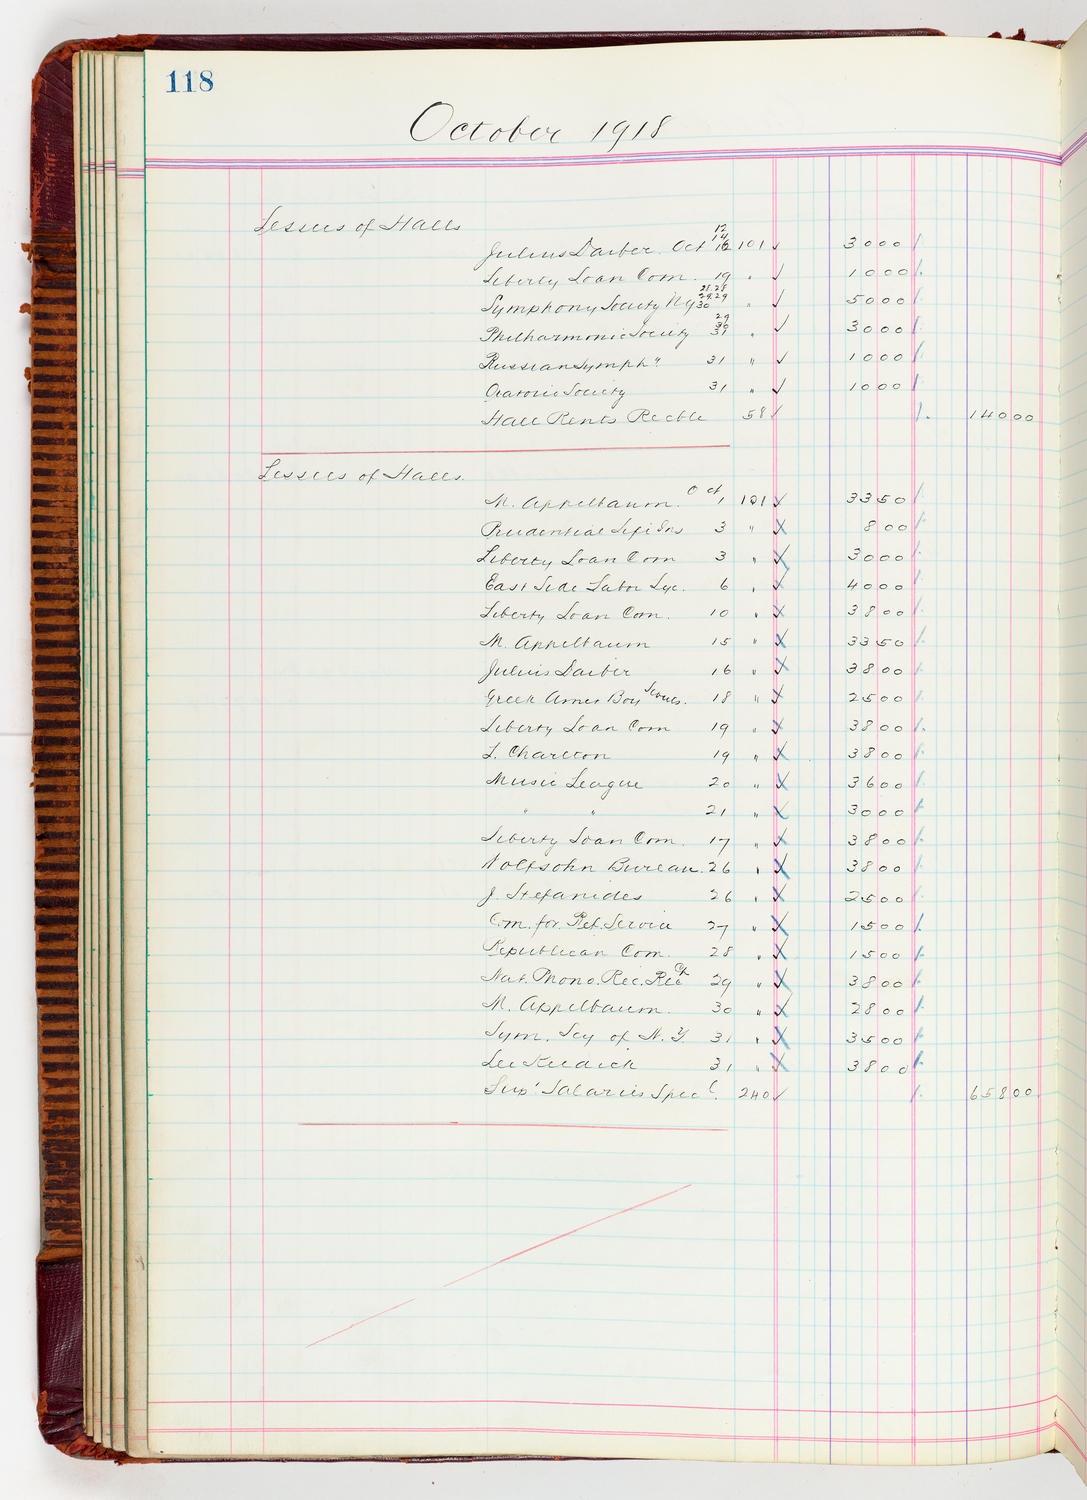 118
October 1918
Lessees of Halls
12
14
Julius Daiber. Oct 16 101 ✓ 3000
Liberty Loan Com. 19 " ✓ 1000
28.28
29.29
Symphony Society NY 30 " ✓ 5000
29
30
Philharmonic Society 31 " ✓ 3000
Russian Symphy 31 " ✓ 1000
Oratorio Society 31 " ✓ 1000
Hall Rents Recble 58 ✓ 14000
Lessees of Halls.
M. Appelbaum. Oct 1 101 ✓ 3350
Prudential Life Ins 3 " 800
Liberty Loan Com 3 " 3000
East Side Labor Lyc. 6 " 4000
Liberty Loan Com. 10 " 3800
M. Appelbaum 15 " 3350
Julius Daiber 16 " 3800
Greek Amer Boy Scouts. 18 " 2500
Liberty Loan Com 19 " 3800
L. Charlton 19 " 3800
Music League 20 " 3600
" " 21 " 3000
Liberty Loan Com. 17 " 3800
Wolfsohn Bureau. 26 " 3800
J. Stefanides 26 " 2500
Com. for. Pat. Service 27 " 1500
Republican Com. 28 " 1500
Nat. Phono. Rec. Rec 29 " 3800
M. Appelbaum. 30 " 2800
Sym. Scy of N.Y. 31 " 3500
Lee Keedick 31 " 3800
Sup' Salaries Specl. 240 ✓ 65800